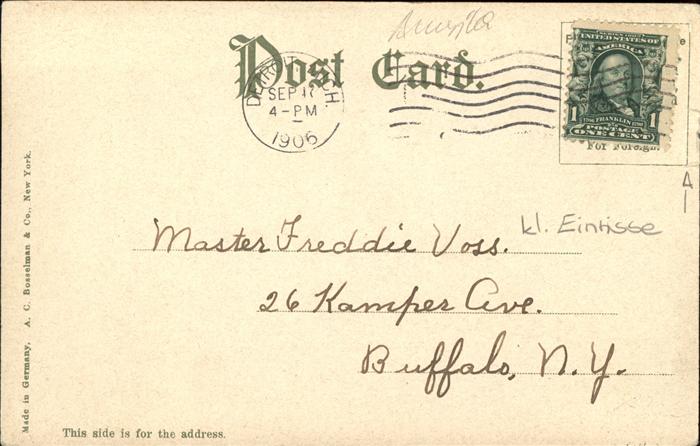 Post Card.
DETROIT, MICH.
SEP 17
4-PM
1906
SERIES 1902
UNITED STATES OF
AMERICA
1 1706 FRANKLIN 1790 1
POSTAGE
ONE CENT
For Foreign
kl. Einrisse
Master Freddie Voss.
26 Kamper Ave.
Buffalo, N.Y.
Made in Germany, A. C. Bosselman & Co., New York.
This side is for the address.